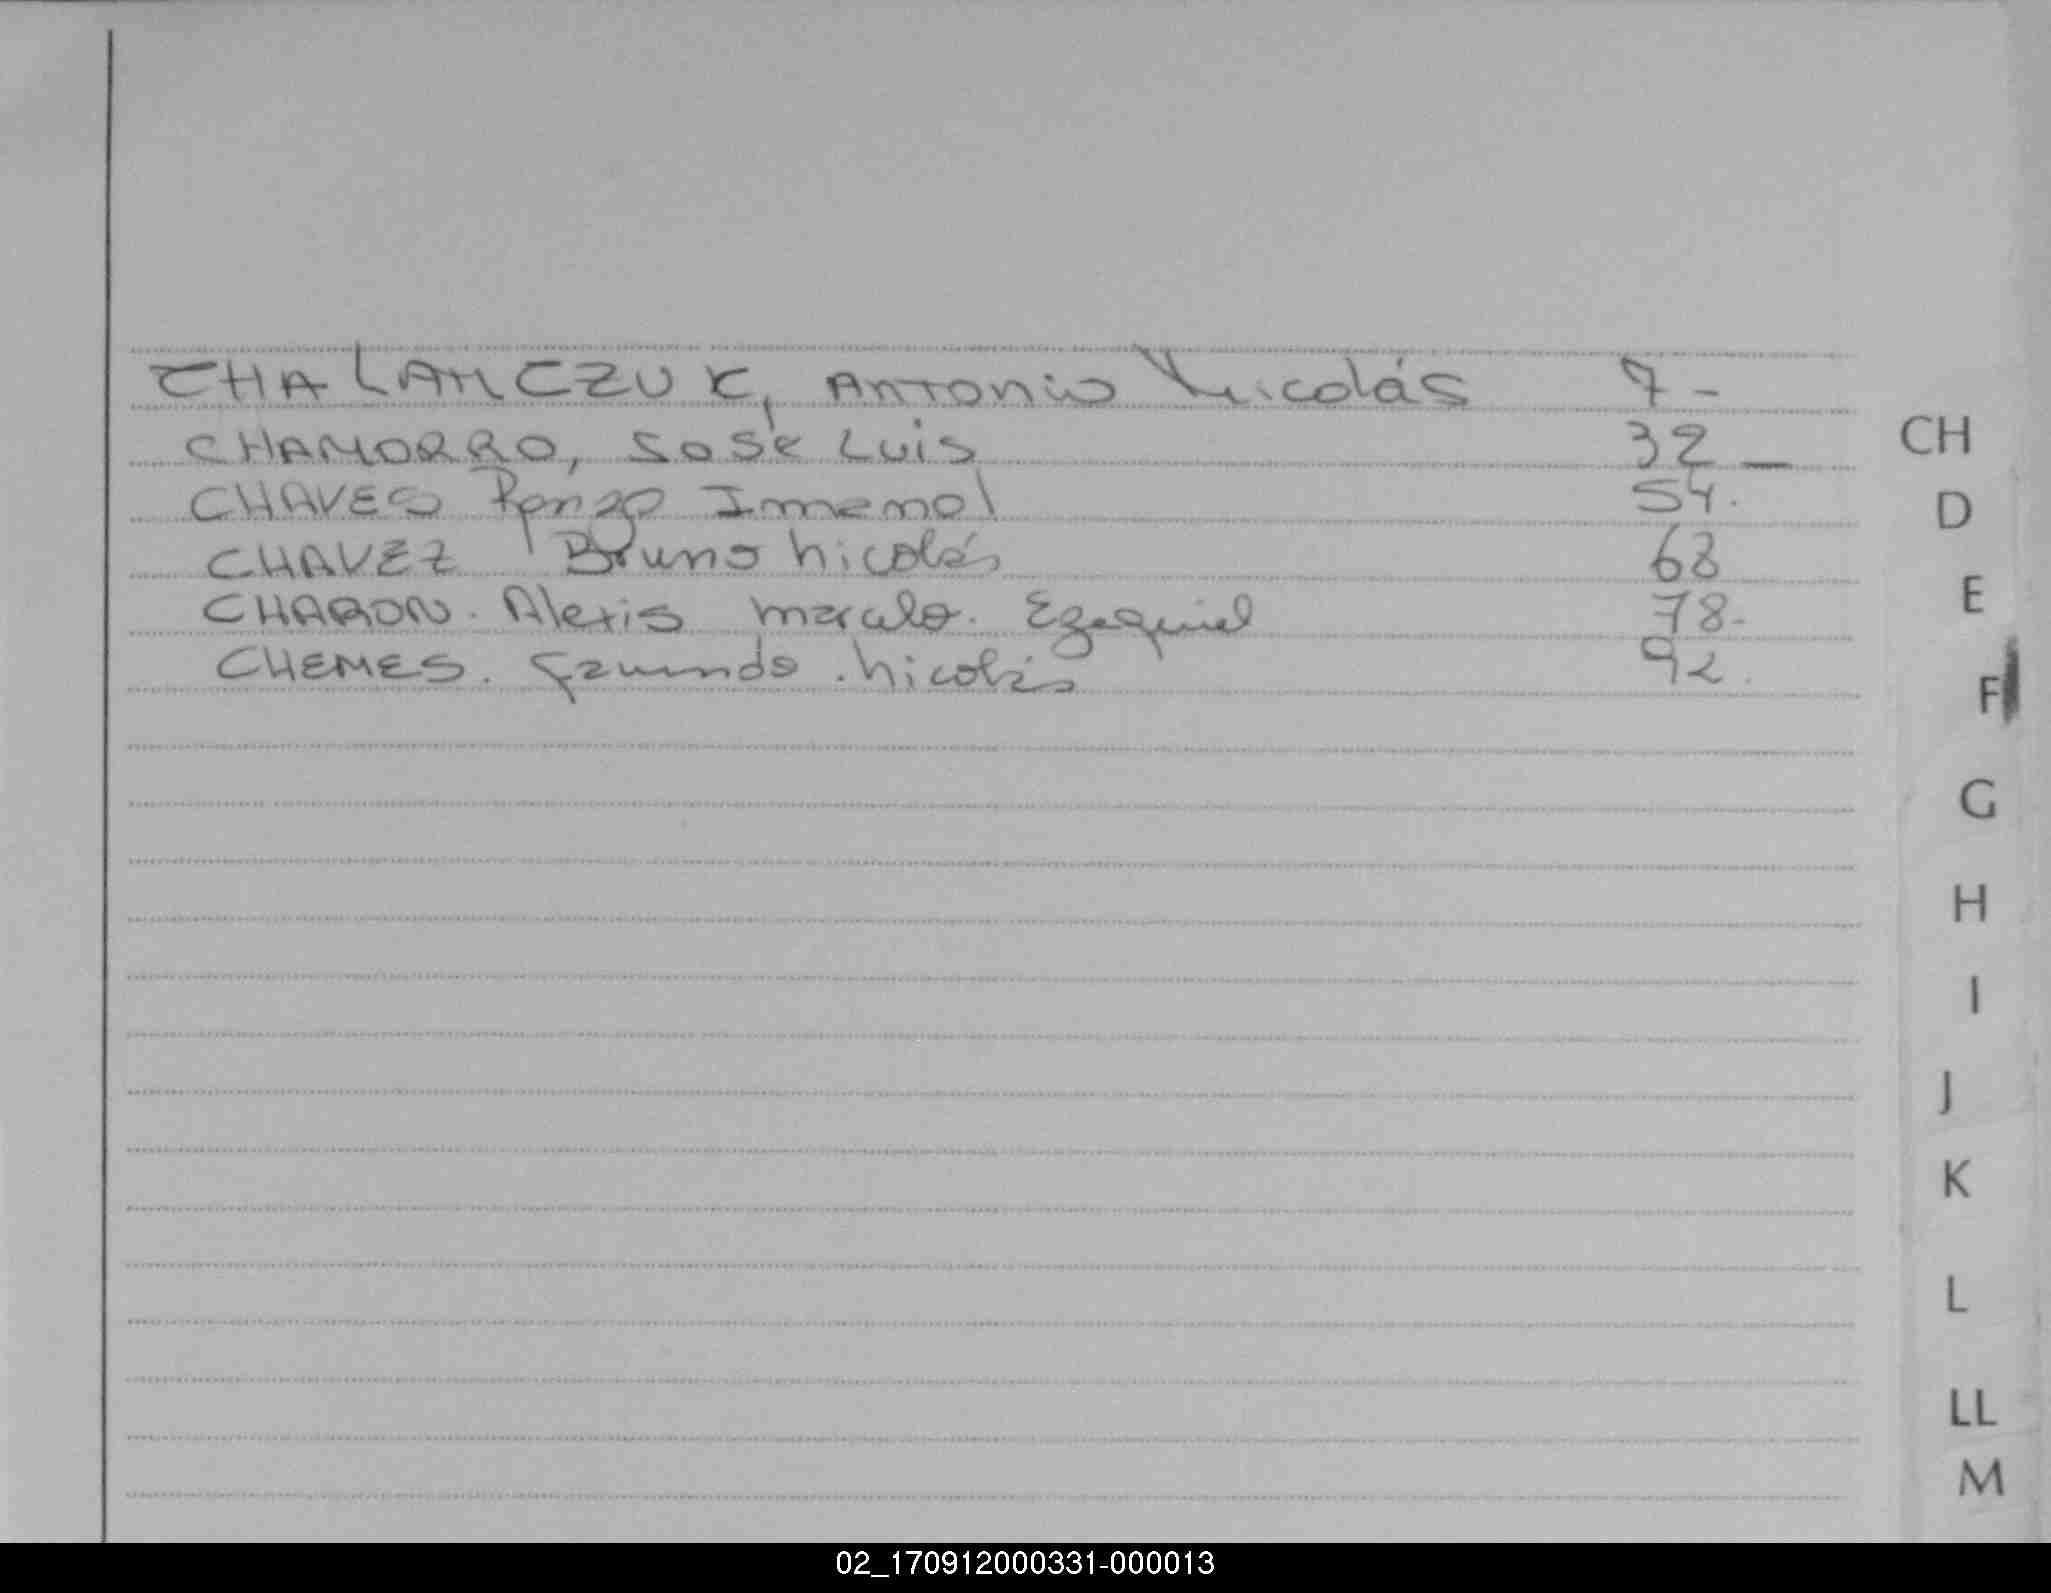 CHALANCZUK, ANTONIO Nicolás 7-
CHAMORRO, JOSÉ LUIS 32 _
CHAVES Renzo Imanol 54.
CHAVEZ Bruno Nicolás 68
CHARON. Alexis Marcelo. Ezequiel 78-
CHEMES. Facundo. Nicolás 92.
CH
D
E
F
G
H
I
J
K
L
LL
M
02_170912000331-000013